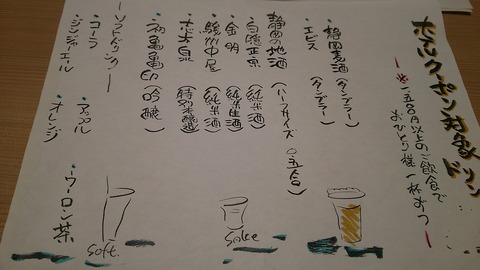 ホテルクーポン対象ドリンク
一五〇〇円以上のご飲食で
おひとり様一杯ずつ
・静岡麦酒（タンブラー）
・エビス（タンブラー）
静岡の地酒（ハーフサイズ
正雪（純米酒）
・金明（純米生酒）
・駿州中屋（純米酒）
（特別本醸造）
（吟醸）
ーソフトドリンクー
・コーラ
・ジンジャーエール
・アップル
・オレンジ
・ウーロン茶
Sake
Soft.